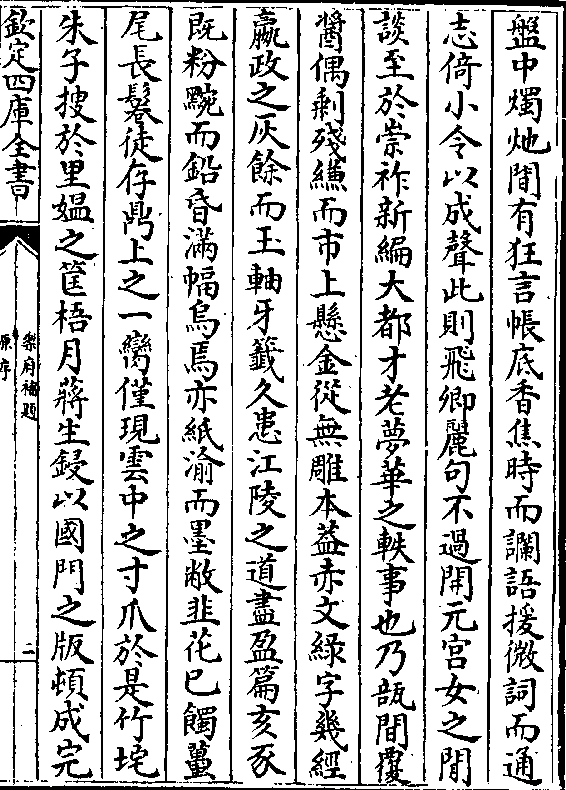 盤中燭灺間有狂言帳底香焦時而讕語援微詞而通
志倚小令以成聲此則飛卿麗句不過開元宫女之閒
談至於崇祚新編大都才老夢華之軼事也乃瓿間覆
醬偶剩殘縑而市上懸金從無雕本葢赤文綠字幾經
嬴政之灰餘而玉軸牙籤久患江陵之道盡盈篇亥豕
既粉䵢而鉛昏滿幅烏焉亦紙渝而墨敝韭花巳饐薑
尾長鬖徒存鼎上之一臠僅現雲中之寸爪於是竹垞
朱子搜於里媪之筐梧月蔣生鋟以國門之版頓成完
欽定四庫全書
樂府補題
原序
二